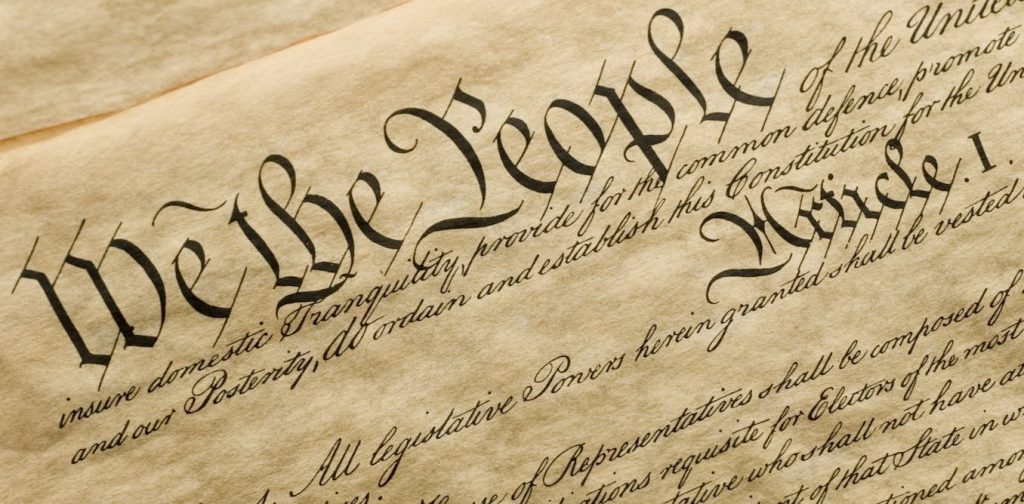 We the People of the United
insure domestic Tranquility, provide for the common defence, promote
and our Posterity, do ordain and establish this Constitution for the Uni
Article. I.
All legislative Powers herein granted shall be vested
of Representatives shall be composed of
requisite for Electors of the most
who shall not have
of that State in